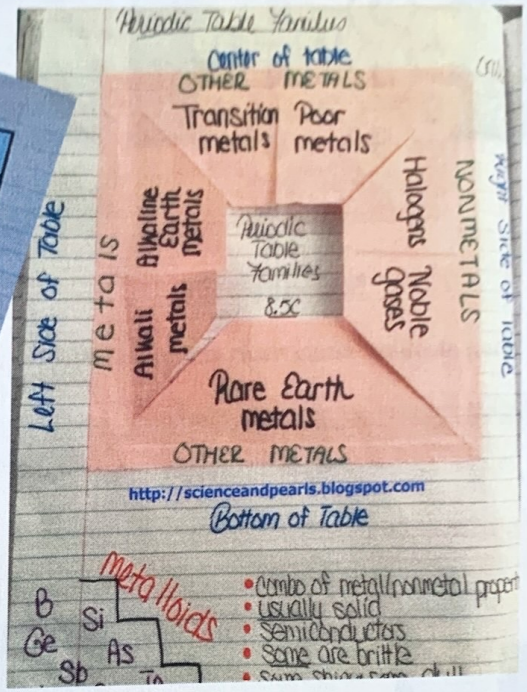 Periodic Table Families
Center of table
OTHER METALS
Transition metals
Poor metals
Left Side of Table
metals
Alkaline Earth metals
Alkali metals
Periodic
Table
Families
8.5C
Halogens
Noble gases
NONMETALS
Right Side of Table
Rare Earth
metals
OTHER METALS
http://scienceandpearls.blogspot.com
Bottom of Table
metalloids
B
Si
Ge
As
Sb
• combo of metal/nonmetal propert
• usually solid
• semiconductors
• some are brittle